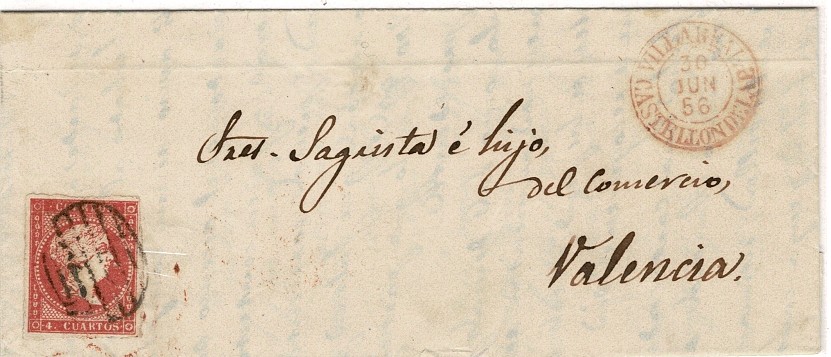 VILLAREAL
30
JUN
56
CASTELLON DE LA P.
Sres. Sagrista é hijo,
del Comercio,
Valencia.
4. CUARTOS